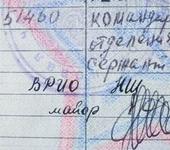 51460 командир
отделения
сержант
ВРИО НШ
майор